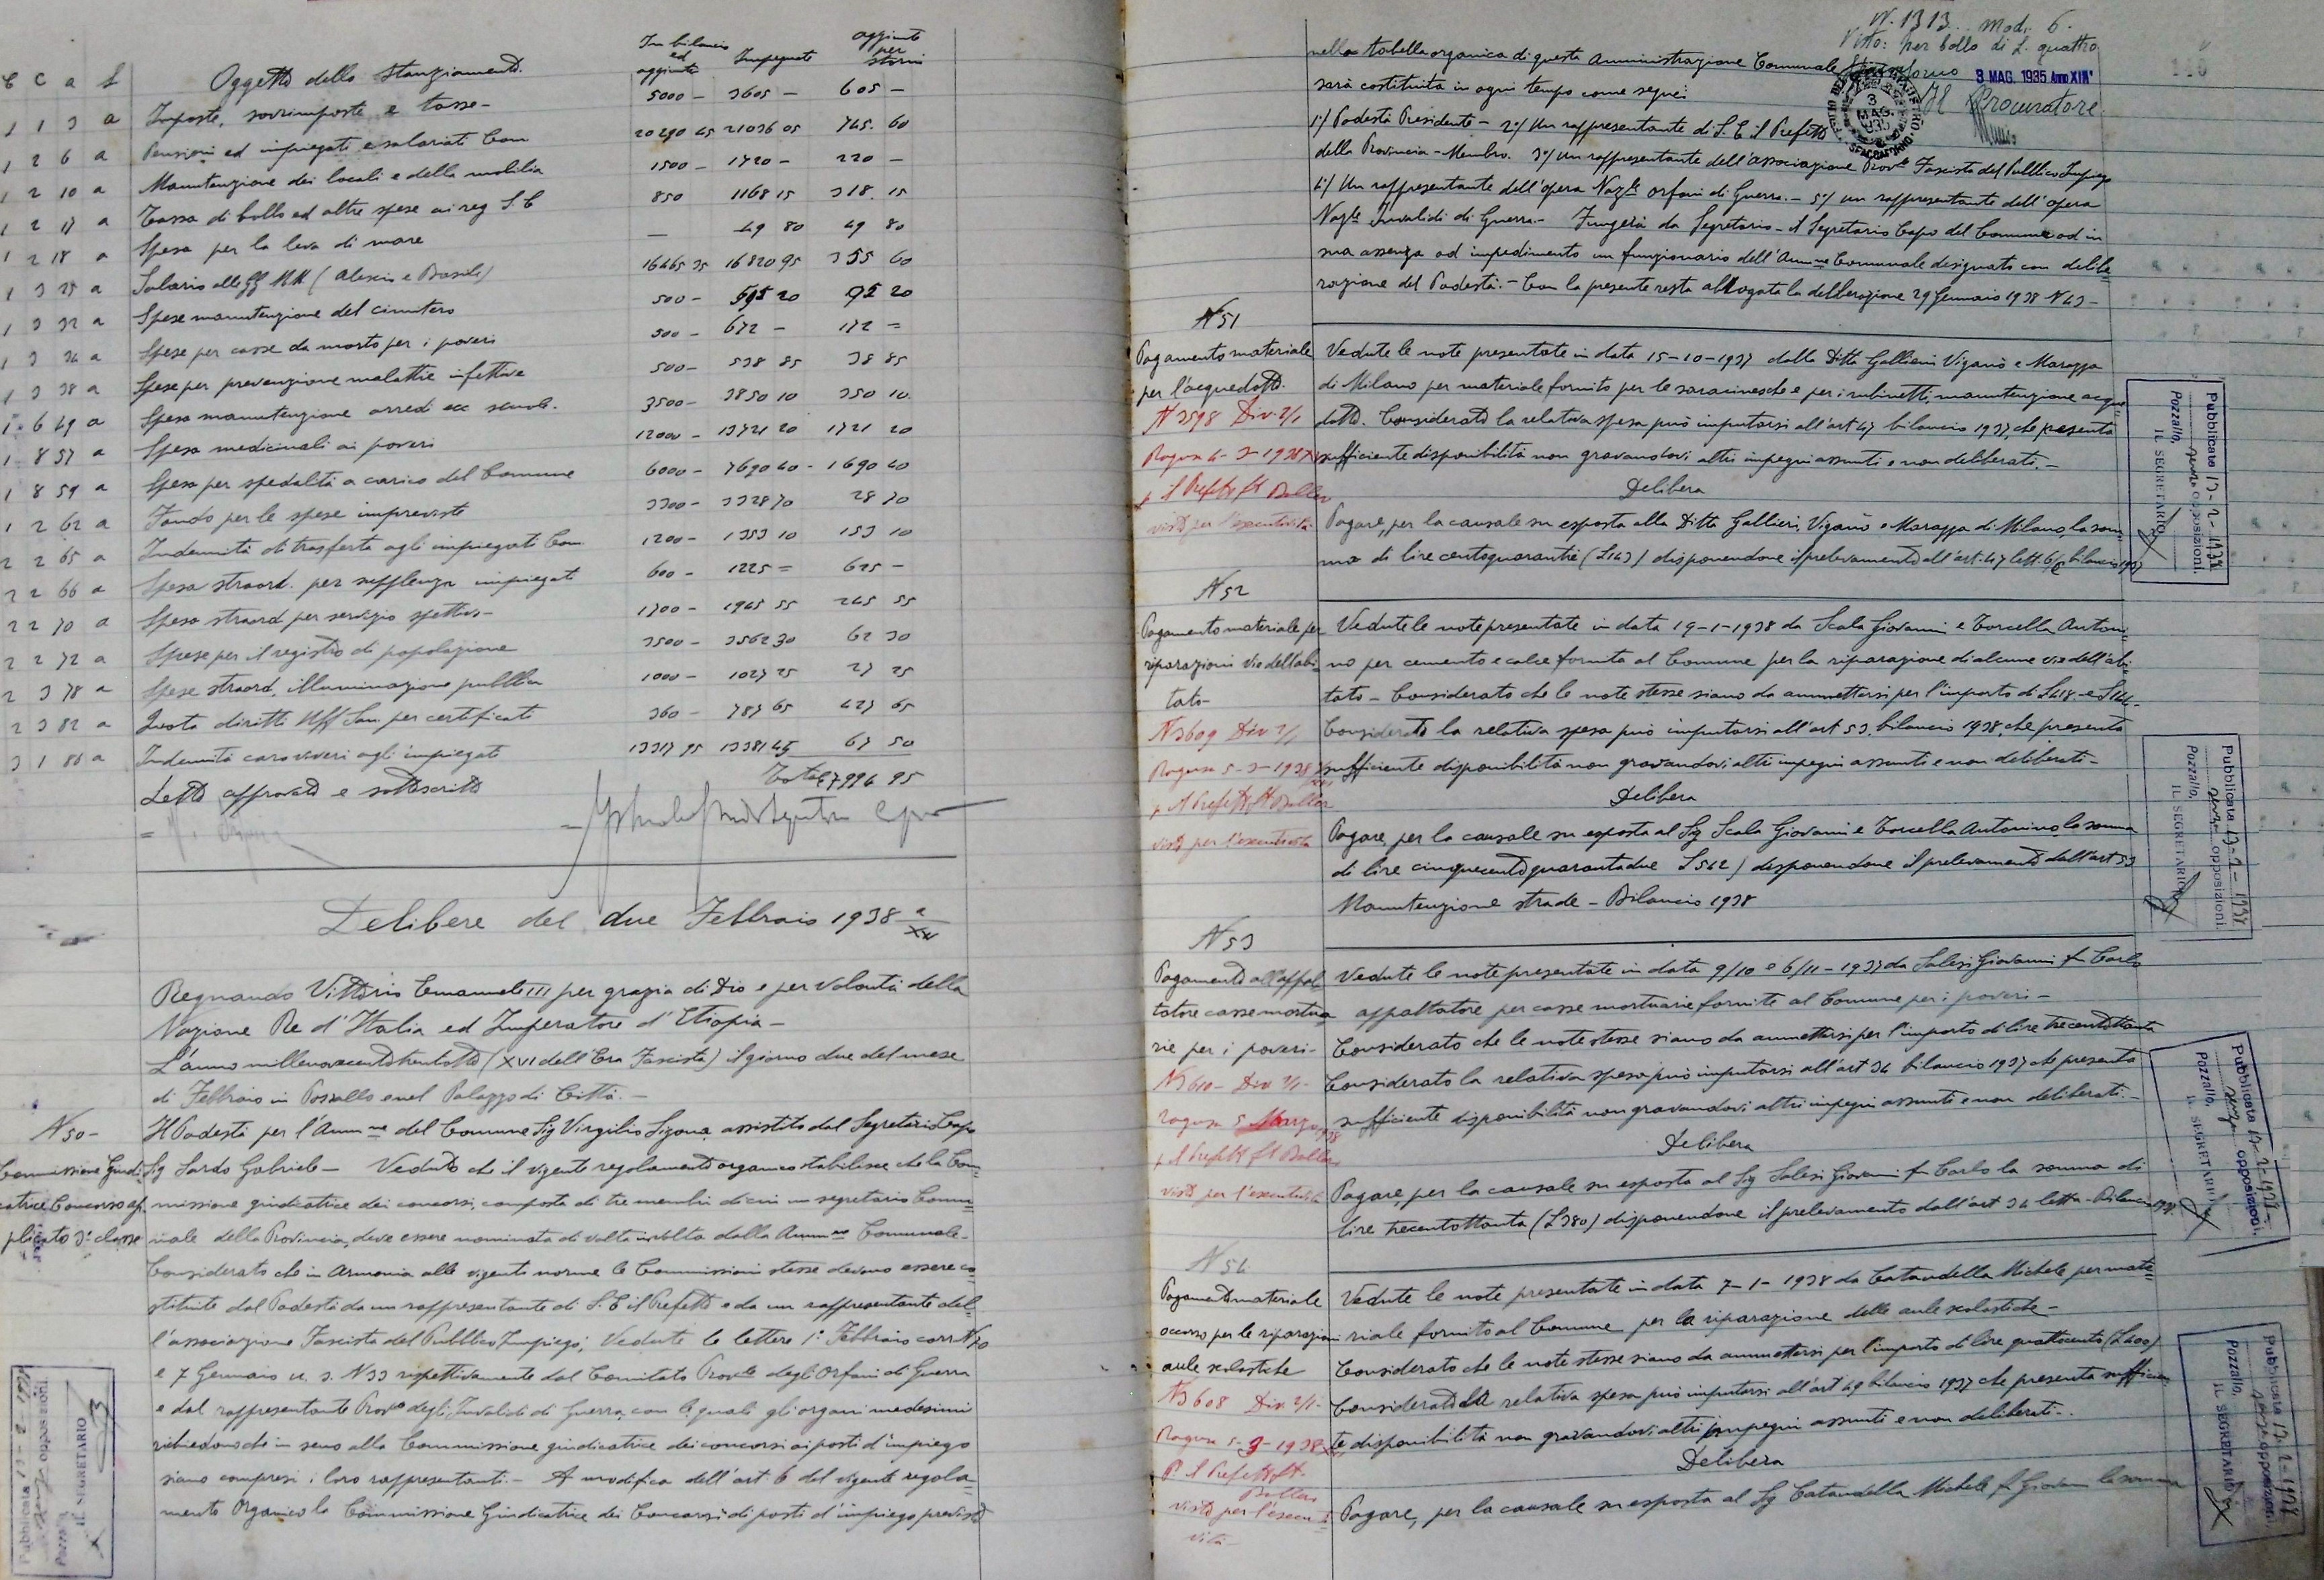 C C a L Oggetto dello Stanziamento. In bilancio ed aggiunte Impegnate aggiunte per storni
1 1 3 a Imposte, sovrimposte e tasse - 5000 - 5605 - 605 -
1 2 6 a Pensioni ed impiegati e salariati Com 20290 45 21036 05 745. 60
1 2 10 a Manutenzione dei locali e della mobilia 1500 - 1720 - 220 -
1 2 17 a Tassa di bollo ed altre spese ai reg S. C 850 1168 15 318. 15
1 2 18 a Spesa per la leva di mare — 49 80 49 80
1 3 28 a Salario alle gg MM (Alescio e Basile) 16465 35 16820 95 355 60
1 3 32 a Spese manutenzione del cimitero 500 - 595 20 95 20
1 3 34 a Spese per casse da morto per i poveri 500 - 672 - 172 =
1 3 38 a Spese per prevenzione malattie infettive 500 - 538 85 38 85
1 6 49 a Spesa manutenzione arredi ecc scuole. 3500 - 3850 10 350 10.
1 8 57 a Spesa medicinali ai poveri 12000 - 13721 20 1721 20
1 8 59 a Spesa per spedalità a carico del Comune 6000 - 7690 40 - 1690 40
1 2 62 a Fondo per le spese impreviste 3300 - 3328 70 28 70
2 2 65 a Indennità di trasferta agli impiegati Com. 1200 - 1353 10 153 10
2 2 66 a Spesa straord. per supplenza impiegati 600 - 1225 = 625 -
2 2 70 a Spesa straord per servizio spettos - 1700 - 1945 55 245 55
2 2 72 a Spese per il registro di popolazione 3500 - 3562 30 62 30
2 3 78 a Spese straord. illuminazione pubblica 1000 - 1027 25 27 25
2 3 82 a Quota diritti Uff San. per certificati 360 - 787 65 427 65
3 1 86 a Indennità caroviveri agli impiegati 13317 95 13381 45 67 50
Letto approvato e sottoscritto Totale 7996 95
Delibere del due Febbraio 1938 a XVI
Regnando Vittorio Emanuele III per grazia di Dio e per volontà della
Nazione Re d'Italia ed Imperatore d'Etiopia -
L'anno millenovecentotrentotto (XVI dell'Era Fascista) il giorno due del mese
di Febbraio in Pozzallo e nel Palazzo di Città. -
N 50 -
Commissione Giudicatrice Concorso applicato 3ª classe
Il Podestà per l'Amm.ne del Comune Sig Virgilio Sigona, assistito dal Segretario Capo
Sig Sardo Gabriele - Veduto che il vigente regolamento organico stabilisce che la Com=
missione giudicatrice dei concorsi, composta di tre membri di cui un segretario Comu=
nale della Provincia, deve essere nominata di volta in volta dalla Amm.ne Comunale -
Considerato che in armonia alle vigenti norme le Commissioni stesse devono essere co=
stituite dal Podestà da un rappresentante di S. E il Prefetto e da un rappresentante del=
l'associazione Fascista del Pubblico Impiego; Vedute le lettere 1° Febbraio corr N 70
e 7 Gennaio u. s. N 33 rispettivamente dal Comitato Prov.le degli Orfani di Guerra
e dal rappresentante Prov.le degli Invalidi di Guerra, con le quali gli organi medesimi
richiedono che in seno alla Commissione giudicatrice dei concorsi ai posti d'impiego
siano compresi i loro rappresentanti. - A modifica dell'art 6 del vigente regola=
mento Organico la Commissione Giudicatrice dei Concorsi di posti d'impiego previsti
Pubblicata 13-2-1938
senza opposizioni.
Pozzallo,
IL SEGRETARIO
N. 1313 Mod. 6.
Visto: per bollo di L. quattro
3 MAG. 1935 Anno XIII°
Il Procuratore
nella tabella organica di questa Amministrazione Comunale
sarà costituita in ogni tempo come segue:
1°/ Podestà Presidente - 2°/ Un rappresentante di S. E il Prefetto
della Provincia - Membro. 3°/ Un rappresentante dell'associazione Prov.le Fascista del Pubblico Impiego
4°/ Un rappresentante dell'opera Naz.le Orfani di Guerra. - 5°/ un rappresentante dell'opera
Naz.le Invalidi di Guerra. - Fungerà da Segretario - il Segretario Capo del Comune od in
sua assenza od impedimento un funzionario dell'Amm.ne Comunale designato con delibe=
razione del Podestà. - Con la presente resta abrogata la deliberazione 29 Gennaio 1938 N 43 -
N 51
Pagamento materiale
per l'acquedotto.
N 3598 Div 2/1
Ragusa 4-3-1938 XVI
p il Prefetto ft Ballero
visto per l'esecutività
Vedute le note presentate in data 15-10-1937 dalla Ditta Gallieni Viganò e Marazza
di Milano per materiale fornito per le saracinesche e per i rubinetti, manutenzione acque=
dotto. Considerato la relativa spesa può imputarsi all'art 47 bilancio 1937, che presenta
sufficiente disponibilità non gravandovi altri impegni assunti e non deliberati. -
Delibera
Pagare, per la causale su esposta alla Ditta Gallieni, Viganò e Marazza di Milano, la som=
ma di lire centoquarantatrè (L 143) disponendone il prelevamento all'art. 47 lett. b/c bilancio 1937
N 52
Pagamento materiale per
riparazioni vie dell'abi
tato -
N 3609 Div 2/1
Ragusa 5-3-1938 XVI
p il Prefetto ft Ballero
visto per l'esecutività
Vedute le note presentate in data 19-1-1938 da Scala Giovanni e Torcella Antoni=
no per cemento e calce fornita al Comune per la riparazione di alcune vie dell'abi
tato - Considerato che le note stesse siano da ammettersi per l'importo di L 418 - e L 144 -
Considerato la relativa spesa può imputarsi all'art 53. bilancio 1938, che presenta
sufficiente disponibilità non gravandovi altri impegni assunti e non deliberati -
Delibera
Pagare, per la causale su esposta al Sig Scala Giovanni e Torcella Antonino, la somma
di lire cinquecentoquarantadue L 562) disponendone il prelevamento dall'art 53
Manutenzione strade - Bilancio 1938
N 53
Pagamento all'appal
tatore casse mortua
rie per i poveri -
N 3610 - Div 2/1 -
Ragusa 5 Marzo 1938
p il Prefetto ft Ballero
visto per l'esecutività
Vedute le note presentate in data 9/10 e 6/11 - 1937 da Salesi Giovanni fu Carlo
appaltatore per casse mortuarie fornite al Comune per i poveri -
Considerato che le note stesse siano da ammettersi per l'importo di lire trecentottanta
Considerato la relativa spesa può imputarsi all'art 34 bilancio 1937 che presenta
sufficiente disponibilità non gravandovi altri impegni assunti e non deliberati. -
Delibera
Pagare, per la causale su esposta al Sig Salesi Giovanni fu Carlo la somma di
lire trecentottanta (L 380) disponendone il prelevamento dall'art 34 lett a - Bilancio 1937.
N 54.
Pagamento materiale
occorso per le riparazioni
aule scolastiche
N 3608 Div 2/1 -
Ragusa 5-3-1938 XVI
P. il Prefetto ft.
Ballero
visto per l'esecu=
tività -
Vedute le note presentate in data 7-1-1938 da Cataudella Michele per mate=
riale fornito al Comune per la riparazione delle aule scolastiche -
Considerato che le note stesse siano da ammettersi per l'importo di lire quattrocento (L 400)
Considerato la relativa spesa può imputarsi all'art 49 bilancio 1937 che presenta sufficien
te disponibilità non gravandovi altri impegni assunti e non deliberati. -
Delibera
Pagare, per la causale su esposta al Sig Cataudella Michele fu Giovanni la somma
Pubblicata 13-2-1938
senza opposizioni.
Pozzallo,
IL SEGRETARIO
Pubblicata 13-2-1938
senza opposizioni.
Pozzallo,
IL SEGRETARIO
Pubblicata 13-2-1938
senza opposizioni.
Pozzallo,
IL SEGRETARIO
Pubblicata 13-2-1938
senza opposizioni.
Pozzallo,
IL SEGRETARIO